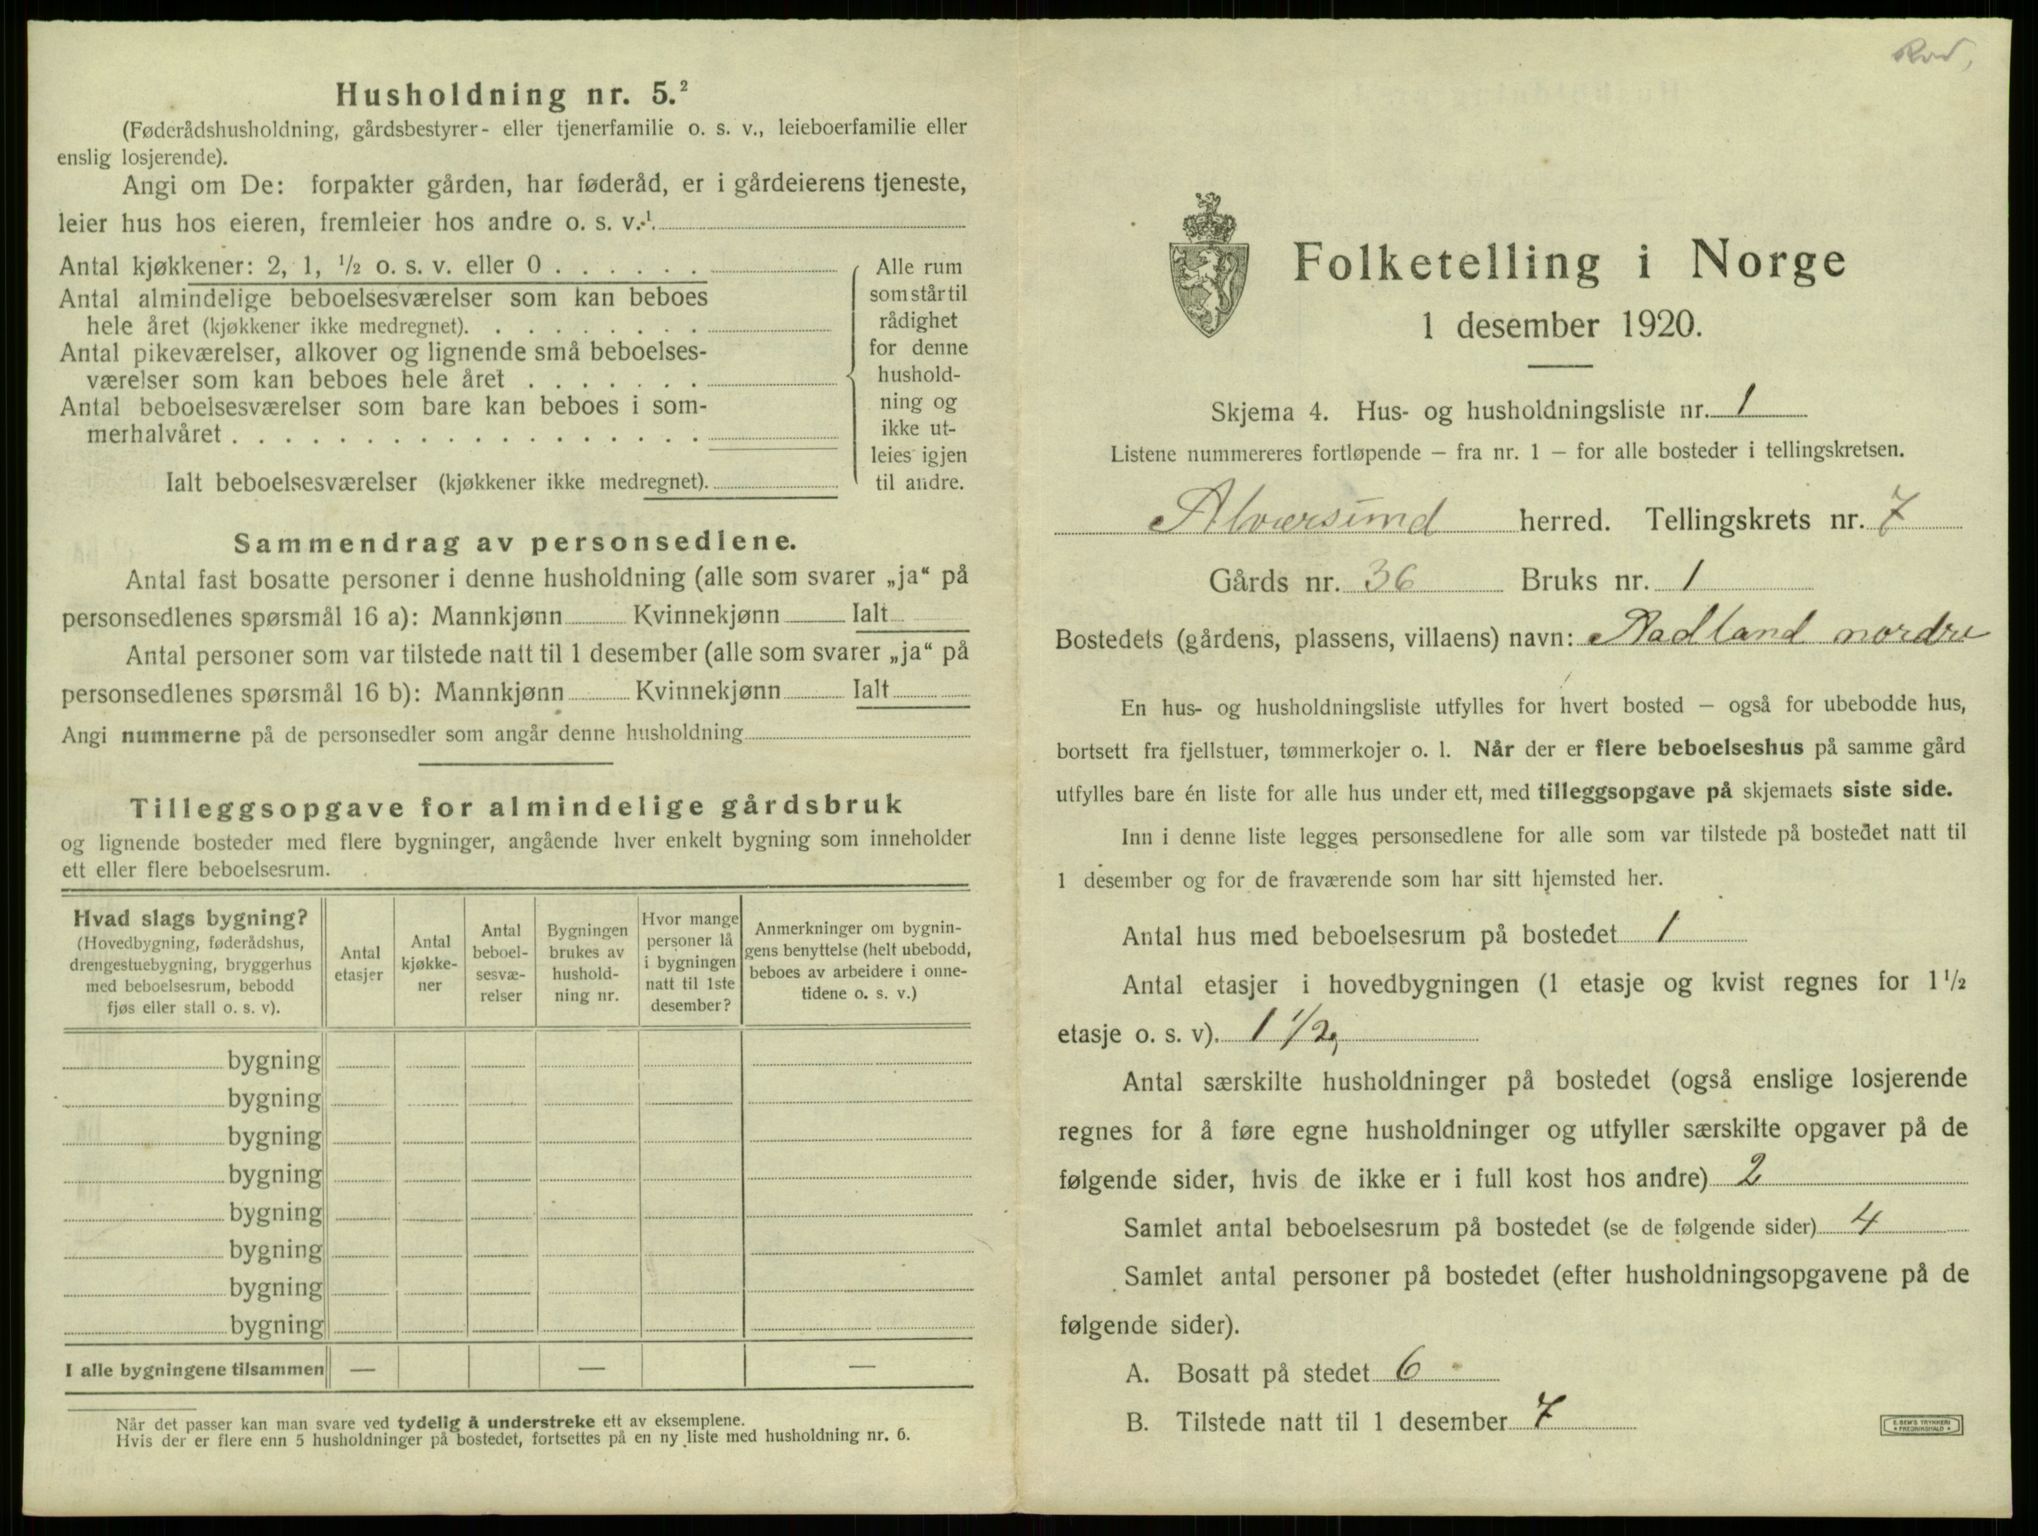 Husholdning nr. 5.²
(Føderådshusholdning, gårdsbestyrer- eller tjenerfamilie o. s. v., leieboerfamilie eller
enslig losjerende).
Angi om De: forpakter gården, har føderåd, er i gårdeierens tjeneste,
leier hus hos eieren, fremleier hos andre o. s. v.¹
Antal kjøkkener: 2, 1, ½ o. s. v. eller 0 . . . . . .
Antal almindelige beboelsesværelser som kan beboes
hele året (kjøkkener ikke medregnet). . . . . . . . .
Antal pikeværelser, alkover og lignende små beboelses-
værelser som kan beboes hele året . . . . . . .
Antal beboelsesværelser som bare kan beboes i som-
merhalvåret . . . . . . . . . . . . . . . . . .
Ialt beboelsesværelser (kjøkkener ikke medregnet).
Alle rum
som står til
rådighet
for denne
hushold-
ning og
ikke ut-
leies igjen
til andre.
Sammendrag av personsedlene.
Antal fast bosatte personer i denne husholdning (alle som svarer „ja“ på
personsedlenes spørsmål 16 a): Mannkjønn Kvinnekjønn Ialt
Antal personer som var tilstede natt til 1 desember (alle som svarer „ja“ på
personsedlenes spørsmål 16 b): Mannkjønn Kvinnekjønn Ialt
Angi nummerne på de personsedler som angår denne husholdning
Tilleggsopgave for almindelige gårdsbruk
og lignende bosteder med flere bygninger, angående hver enkelt bygning som inneholder
ett eller flere beboelsesrum.
Hvad slags bygning?
(Hovedbygning, føderådshus,
drengestuebygning, bryggerhus
med beboelsesrum, bebodd
fjøs eller stall o. s. v).
Antal
etasjer
Antal
kjøkke-
ner
Antal
beboel-
sesvæ-
relser
Bygningen
brukes av
hushold-
ning nr.
Hvor mange
personer lå
i bygningen
natt til 1ste
desember?
Anmerkninger om bygnin-
gens benyttelse (helt ubebodd,
beboes av arbeidere i onne-
tidene o. s. v.)
bygning
bygning
bygning
bygning
bygning
bygning
bygning
bygning
I alle bygningene tilsammen — — —
Når det passer kan man svare ved tydelig å understreke ett av eksemplene.
Hvis der er flere enn 5 husholdninger på bostedet, fortsettes på en ny liste med husholdning nr. 6.
Folketelling i Norge
1 desember 1920.
Skjema 4. Hus- og husholdningsliste nr. 1
Listene nummereres fortløpende — fra nr. 1 — for alle bosteder i tellingskretsen.
Alversund herred. Tellingskrets nr. 7
Gårds nr. 36 Bruks nr. 1
Bostedets (gårdens, plassens, villaens) navn: Aadland nordre
En hus- og husholdningsliste utfylles for hvert bosted — også for ubebodde hus,
bortsett fra fjellstuer, tømmerkojer o. l. Når der er flere beboelseshus på samme gård
utfylles bare én liste for alle hus under ett, med tilleggsopgave på skjemaets siste side.
Inn i denne liste legges personsedlene for alle som var tilstede på bostedet natt til
1 desember og for de fraværende som har sitt hjemsted her.
Antal hus med beboelsesrum på bostedet 1
Antal etasjer i hovedbygningen (1 etasje og kvist regnes for 1½
etasje o. s. v). 1 1/2,
Antal særskilte husholdninger på bostedet (også enslige losjerende
regnes for å føre egne husholdninger og utfyller særskilte opgaver på de
følgende sider, hvis de ikke er i full kost hos andre) 2
Samlet antal beboelsesrum på bostedet (se de følgende sider) 4
Samlet antal personer på bostedet (efter husholdningsopgavene på de
følgende sider).
A. Bosatt på stedet 6
B. Tilstede natt til 1 desember 7
E. SEM'S TRYKKERI
FREDRIKSHALD